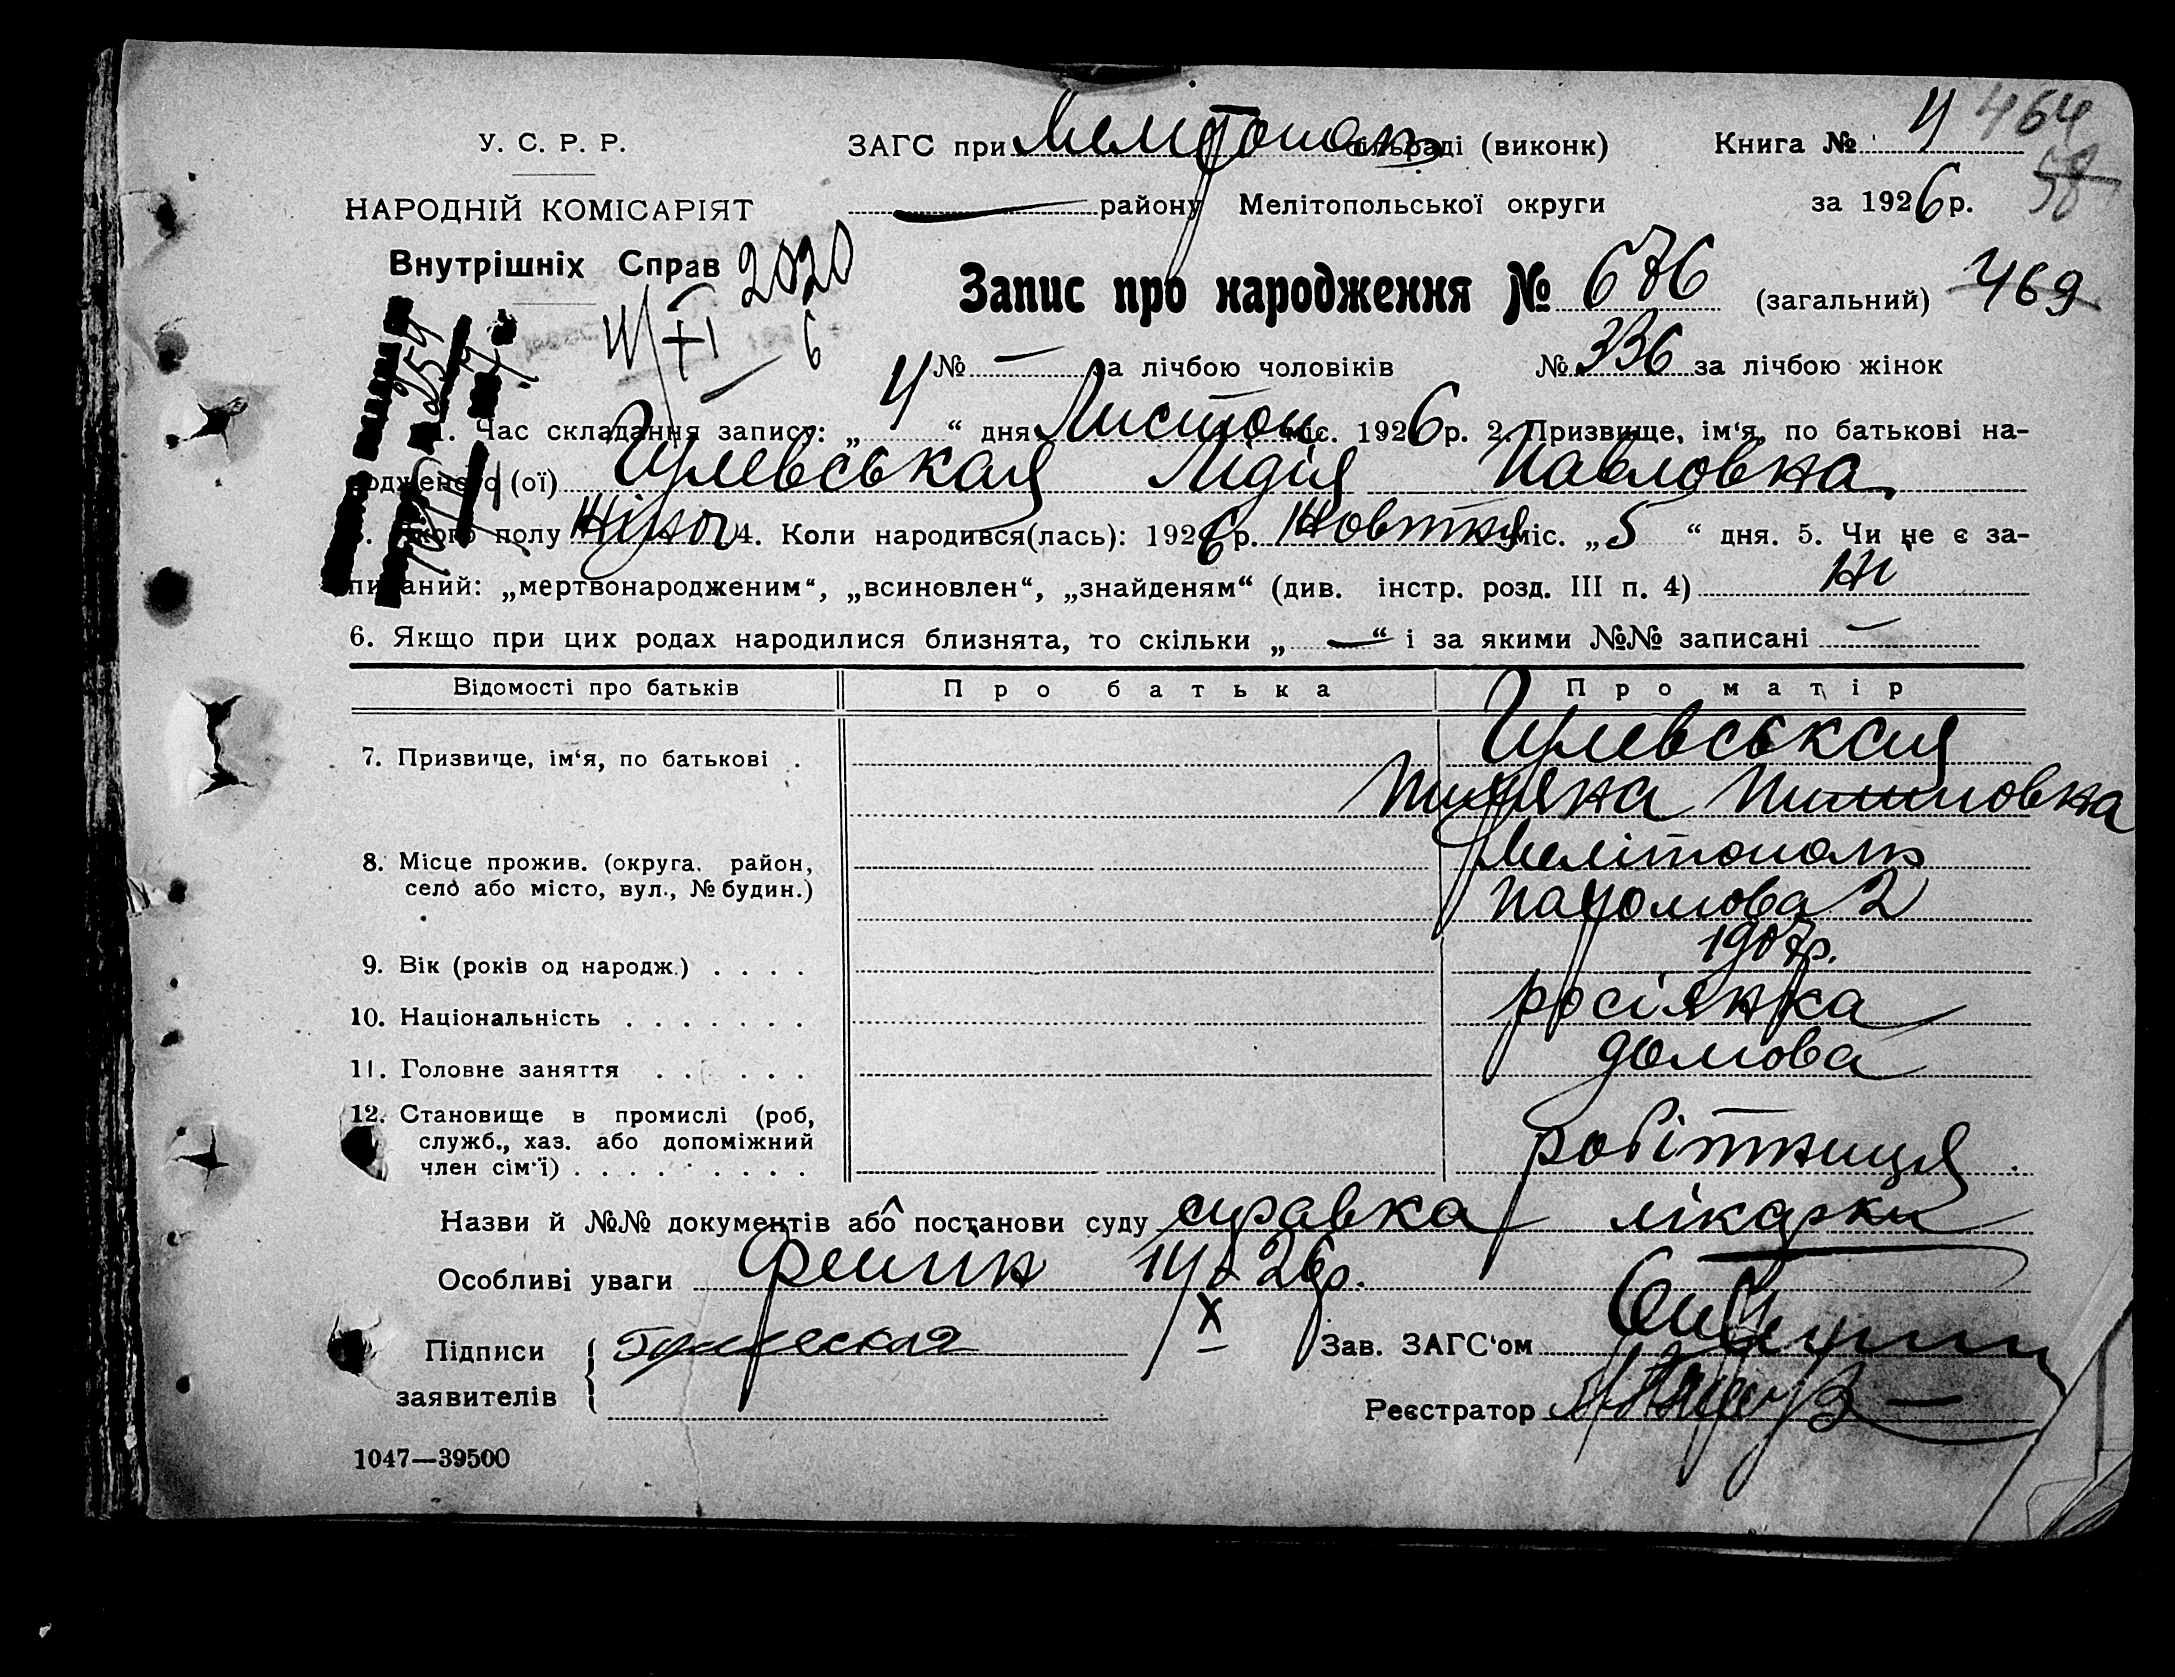 У. С. Р. Р.
НАРОДНІЙ КОМІСАРІЯТ
Внутрішніх Справ
2020
ЗАГС при Мелітополь сільраді (виконк)
району Мелітопольської округи
Книга № 4 464
за 1926 р. 58
Запис про народження № 676 (загальний) 469
№ — за лічбою чоловіків № 336 за лічбою жінок
1. Час складання запису: „ 4 “ дня Листоп міс. 1926 р. 2. Призвище, ім‘я, по батькові на-
родженого (ої) Гулевськая Лідія Павловна
3. Якого полу Жіноч 4. Коли народився(лась): 1926 р. Жовтня міс. „ 5 “ дня. 5. Чи не є за-
писаний: „мертвонародженим“, „всиновлен“, „знайденям“ (див. інстр. розд. III п. 4) Ні
6. Якщо при цих родах народилися близнята, то скільки „ — “ і за якими №№ записані —
Відомості про батьків Про батька Про матір
7. Призвище, ім‘я, по батькові . Гулевськая
Пилиповна
8. Місце прожив. (округа, район, Мелітополь
село або місто, вул., № будин.) Пахомова 2
9. Вік (років од народж.) . . . . 1907 р.
10. Національність . . . . . . . росіянка
11. Головне заняття . . . . . . домова
12. Становище в промислі (роб,
служб., хаз. або допоміжний робітниця
член сім‘ї) . . . . . . . . .
Назви й №№ документів або постанови суду справка лікарки
Особливі уваги 26 р.
Підписи Гулевская Зав. ЗАГС‘ом
заявителів
Реєстратор
1047—39500